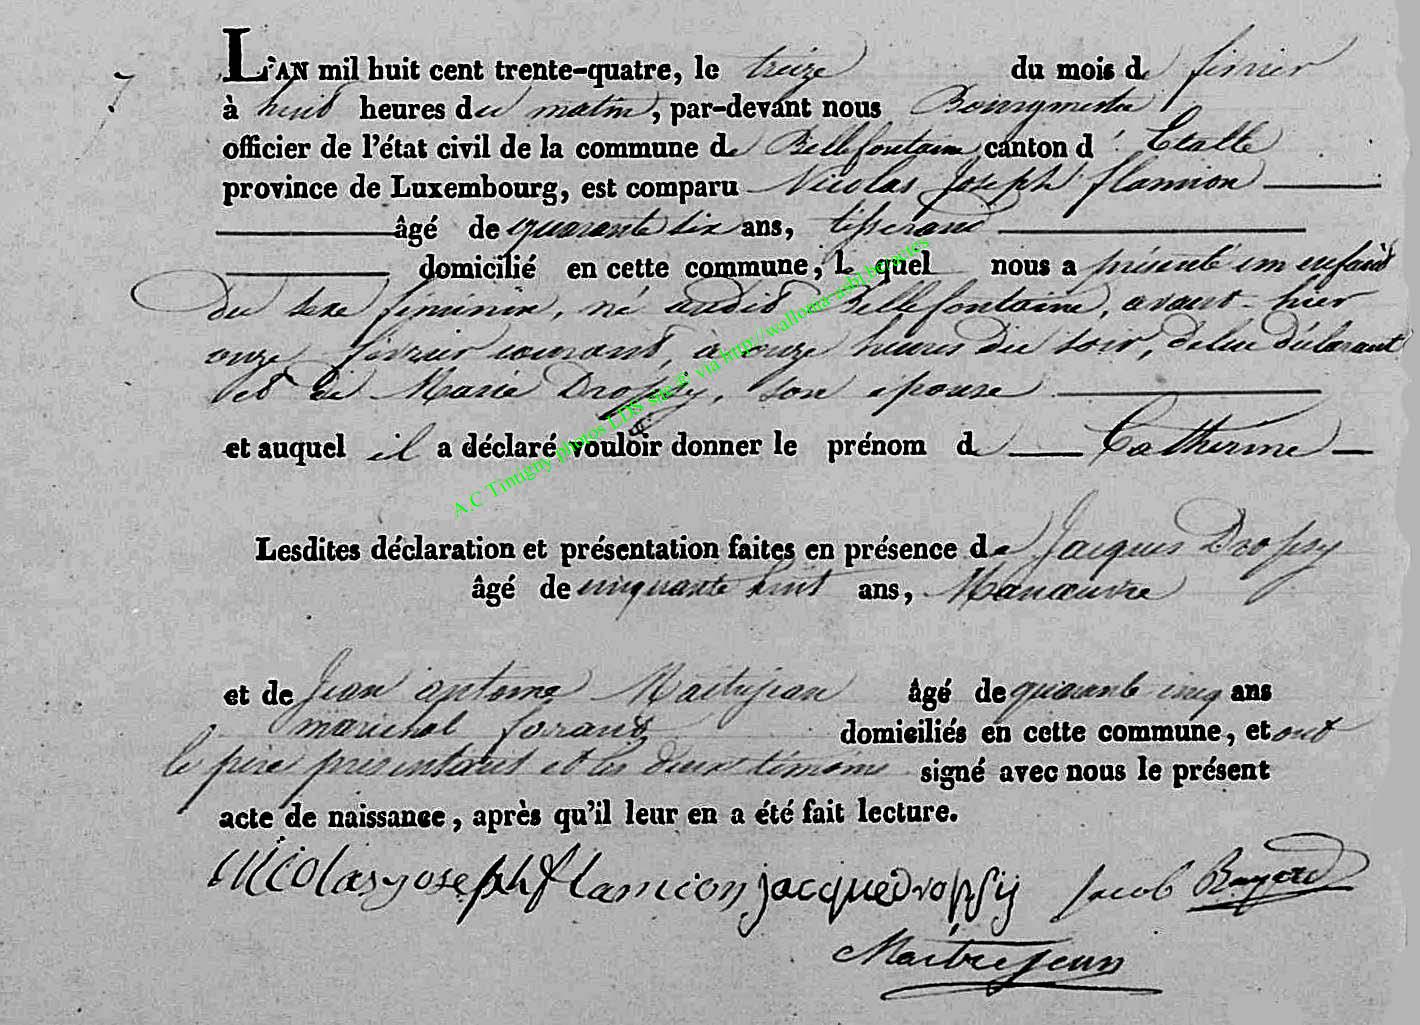 7
L'AN mil huit cent trente-quatre, le treize du mois de février
à huit heures du matin, par-devant nous Bourgmestre
officier de l'état civil de la commune de Bellefontaine canton d' Etalle
province de Luxembourg, est comparu Nicolas Joseph flamion
âgé de quarante six ans, tisserand
domicilié en cette commune, le quel nous a présenté un enfant
du sexe féminin, né audit Bellefontaine, avant-hier
onze février courant, à onze heures du soir, de lui déclarant
et de Marie Dropsy, son épouse
et auquel il a déclaré vouloir donner le prénom de Catherine
Lesdites déclaration et présentation faites en présence de Jacques Dropsy
âgé de cinquante huit ans, Manœuvre
et de Jean antoine Maitrejean âgé de quarante cinq ans
marechal ferrant domiciliés en cette commune, et ont
le père présentant et les deux témoins signé avec nous le présent
acte de naissance, après qu'il leur en a été fait lecture.
Nicolas joseph flamion jacque dropsy Jacob
Maitrejean
A.C Tintigny photos LDS site @ via http://wallonia-asbl.be/actes